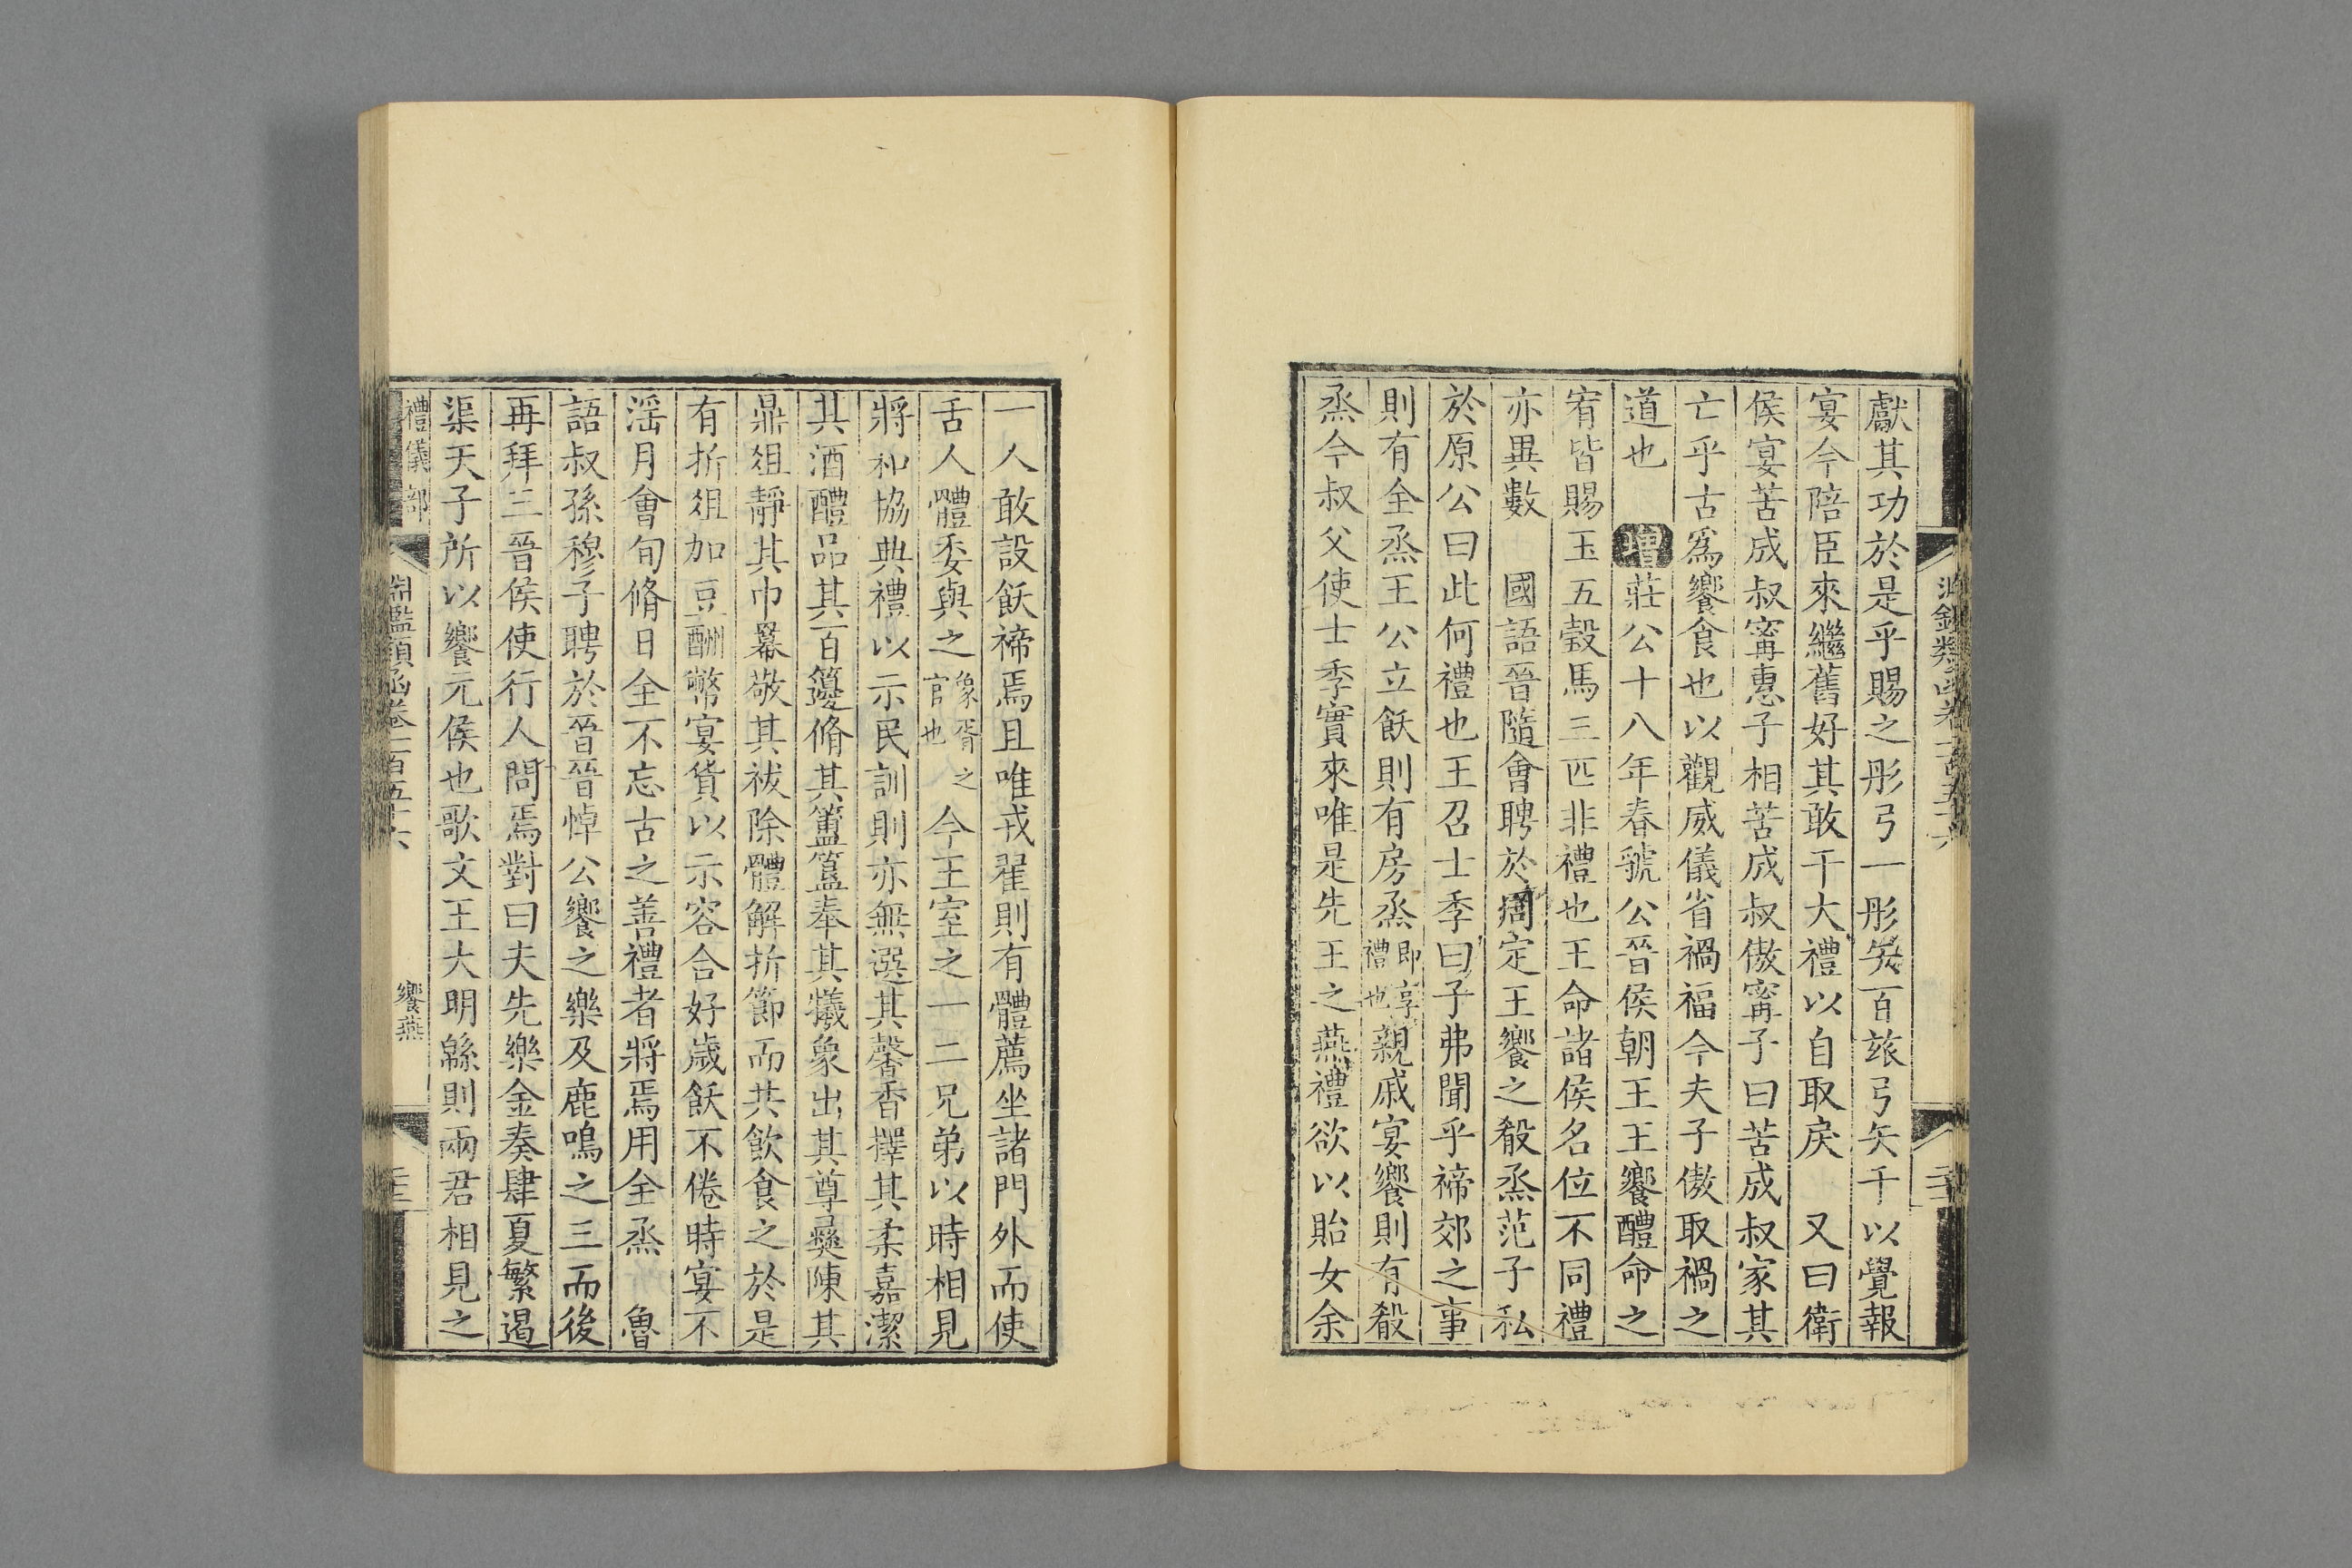 獻其功於是乎賜之彤弓一彤矢百玈弓矢千以覺報
宴今陪臣來繼舊好其敢干大禮以自取戾　又曰衛
侯宴苦成叔甯惠子相苦成叔傲甯子曰苦成叔家其
亡乎古爲饗食也以觀威儀省禍福今夫子傲取禍之
道也　增莊公十八年春虢公晉侯朝王王饗醴命之
宥皆賜玉五瑴馬三匹非禮也王命諸侯名位不同禮
亦異數　國語晉隨會聘於周定王饗之殽烝范子私
於原公曰此何禮也王召士季曰子弗聞乎禘郊之事
則有全烝王公立飫則有房烝即享禮也親戚宴饗則有殽
烝今叔父使士季實來唯是先王之燕禮欲以貽女余
一人敢設飫禘焉且唯戎翟則有體薦坐諸門外而使
舌人體委與之象胥之官也今王室之一二兄弟以時相見
將和協典禮以示民訓則亦無選其馨香擇其柔嘉潔
其酒醴品其百籩脩其簠簋奉其犧象出其尊彝陳其
鼎俎靜其巾羃敬其祓除體解折節而共飲食之於是
有折俎加豆酬幣宴貨以示容合好歲飫不倦時宴不
淫月會旬脩日全不忘古之善禮者將焉用全烝　魯
語叔孫穆子聘於晉晉悼公饗之樂及鹿鳴之三而後
再拜三晉侯使行人問焉對曰夫先樂金奏肆夏繁遏
渠天子所以饗元侯也歌文王大明緜則兩君相見之
禮儀部
淵鑑類函卷一百五十六
饗燕